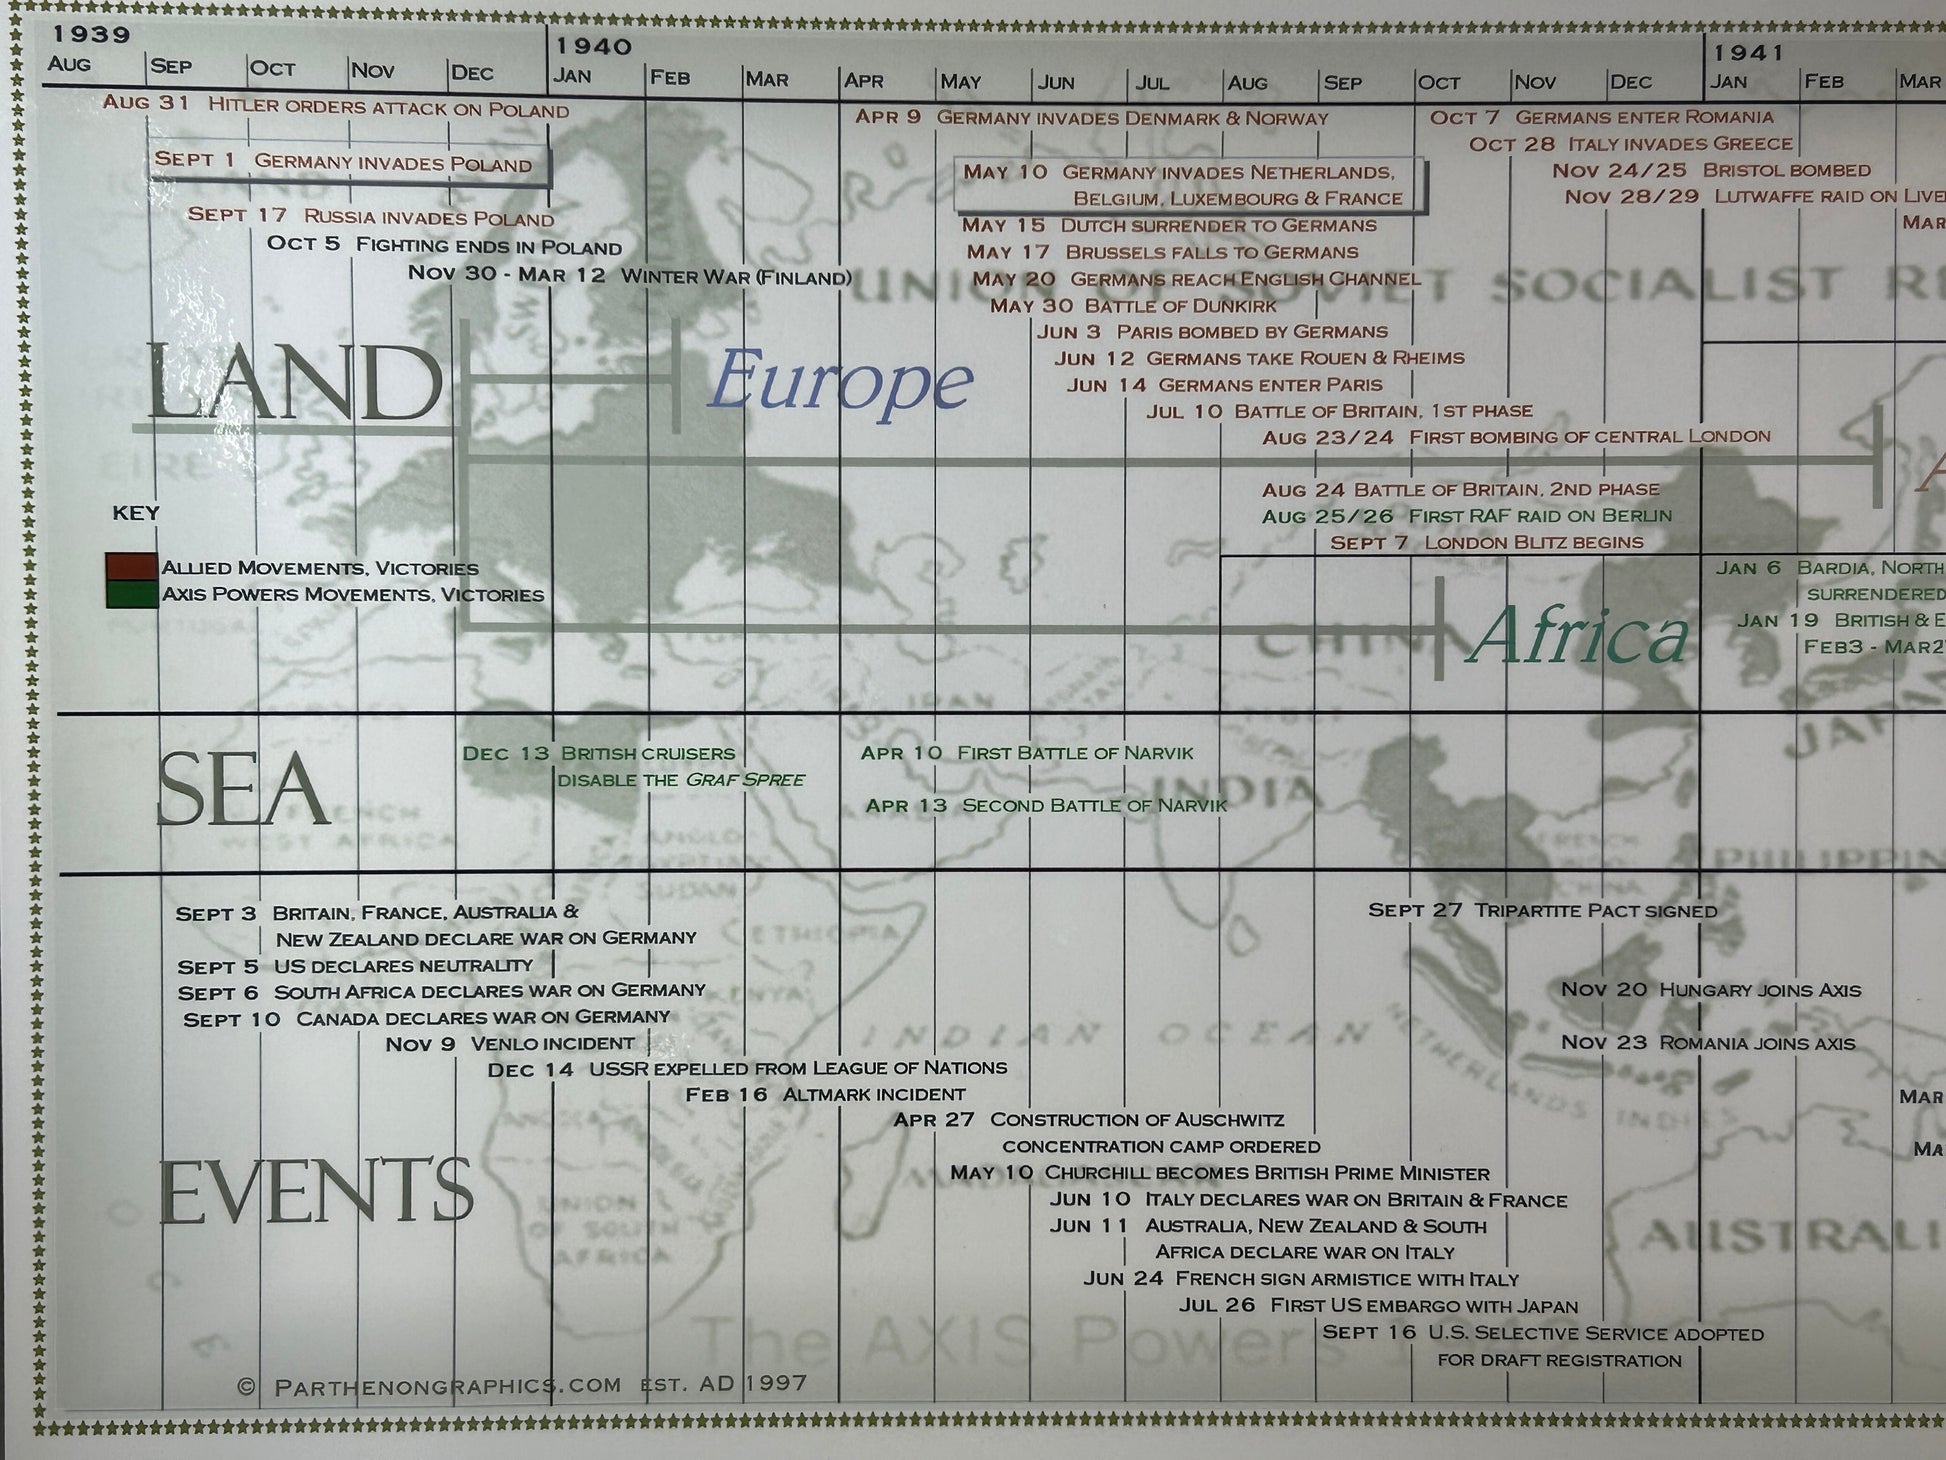 1939
1940
1941
AUG SEP OCT NOV DEC JAN FEB MAR APR MAY JUN JUL AUG SEP OCT NOV DEC JAN FEB MAR
AUG 31 HITLER ORDERS ATTACK ON POLAND
SEPT 1 GERMANY INVADES POLAND
SEPT 17 RUSSIA INVADES POLAND
OCT 5 FIGHTING ENDS IN POLAND
NOV 30 - MAR 12 WINTER WAR (FINLAND)
APR 9 GERMANY INVADES DENMARK & NORWAY
MAY 10 GERMANY INVADES NETHERLANDS,
BELGIUM, LUXEMBOURG & FRANCE
MAY 15 DUTCH SURRENDER TO GERMANS
MAY 17 BRUSSELS FALLS TO GERMANS
MAY 20 GERMANS REACH ENGLISH CHANNEL
MAY 30 BATTLE OF DUNKIRK
JUN 3 PARIS BOMBED BY GERMANS
JUN 12 GERMANS TAKE ROUEN & RHEIMS
JUN 14 GERMANS ENTER PARIS
JUL 10 BATTLE OF BRITAIN, 1ST PHASE
AUG 23/24 FIRST BOMBING OF CENTRAL LONDON
AUG 24 BATTLE OF BRITAIN, 2ND PHASE
AUG 25/26 FIRST RAF RAID ON BERLIN
SEPT 7 LONDON BLITZ BEGINS
OCT 7 GERMANS ENTER ROMANIA
OCT 28 ITALY INVADES GREECE
NOV 24/25 BRISTOL BOMBED
NOV 28/29 LUTWAFFE RAID ON LIVE
MAR
UNION OF SOVIET SOCIALIST RE
LAND
Europe
KEY
ALLIED MOVEMENTS, VICTORIES
AXIS POWERS MOVEMENTS, VICTORIES
Africa
JAN 6 BARDIA, NORTH
SURRENDERED
JAN 19 BRITISH & E
FEB3 - MAR2
CHINA
IRAN
TIBET
JAPAN
SEA
DEC 13 BRITISH CRUISERS
DISABLE THE GRAF SPREE
APR 10 FIRST BATTLE OF NARVIK
APR 13 SECOND BATTLE OF NARVIK
INDIA
FRENCH
WEST AFRICA
ANGLO
EGYPTIAN
SUDAN
FRENCH
INDO
CHINA
PHILIPPIN
ETHIOPIA
KENYA
SEPT 3 BRITAIN, FRANCE, AUSTRALIA &
NEW ZEALAND DECLARE WAR ON GERMANY
SEPT 5 US DECLARES NEUTRALITY
SEPT 6 SOUTH AFRICA DECLARES WAR ON GERMANY
SEPT 10 CANADA DECLARES WAR ON GERMANY
NOV 9 VENLO INCIDENT
DEC 14 USSR EXPELLED FROM LEAGUE OF NATIONS
FEB 16 ALTMARK INCIDENT
APR 27 CONSTRUCTION OF AUSCHWITZ
CONCENTRATION CAMP ORDERED
MAY 10 CHURCHILL BECOMES BRITISH PRIME MINISTER
JUN 10 ITALY DECLARES WAR ON BRITAIN & FRANCE
JUN 11 AUSTRALIA, NEW ZEALAND & SOUTH
AFRICA DECLARE WAR ON ITALY
JUN 24 FRENCH SIGN ARMISTICE WITH ITALY
JUL 26 FIRST US EMBARGO WITH JAPAN
SEPT 16 U.S. SELECTIVE SERVICE ADOPTED
FOR DRAFT REGISTRATION
SEPT 27 TRIPARTITE PACT SIGNED
NOV 20 HUNGARY JOINS AXIS
NOV 23 ROMANIA JOINS AXIS
MAR
MA
INDIAN OCEAN
NETHERLANDS INDIES
EVENTS
UNION
OF SOUTH
AFRICA
AUSTRALI
The AXIS Powers
© PARTHENONGRAPHICS.COM EST. AD 1997